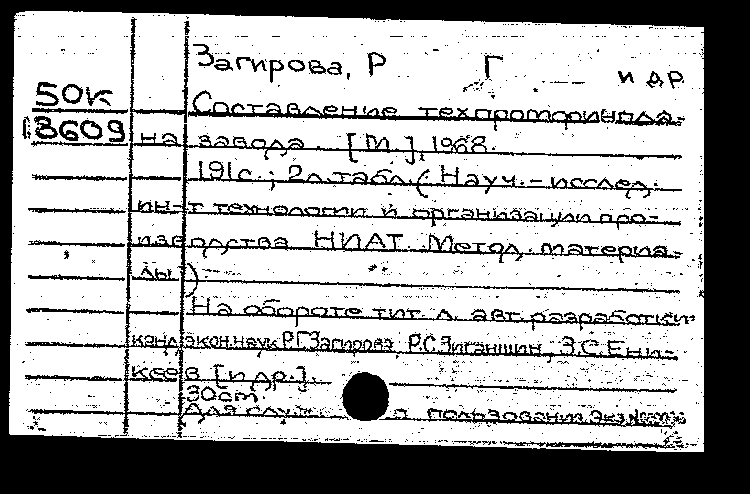 Загирова, Р Г и др
50К
Составление техпромфинпла-
8609
на завода. [М.], 1968.
191с.; 2л.табл. (Науч.-исслед.
ин-т технологии и организации про-
изводства НИАТ. Метод. материа-
лы)
На обороте тит. л. авт. разработки
канд. экон. наук Р.Г.Загирова, Р.С.Зиганшин, З.С.Ени-
кеев [и др.].
30cm.
Для служ пользования. Экз.